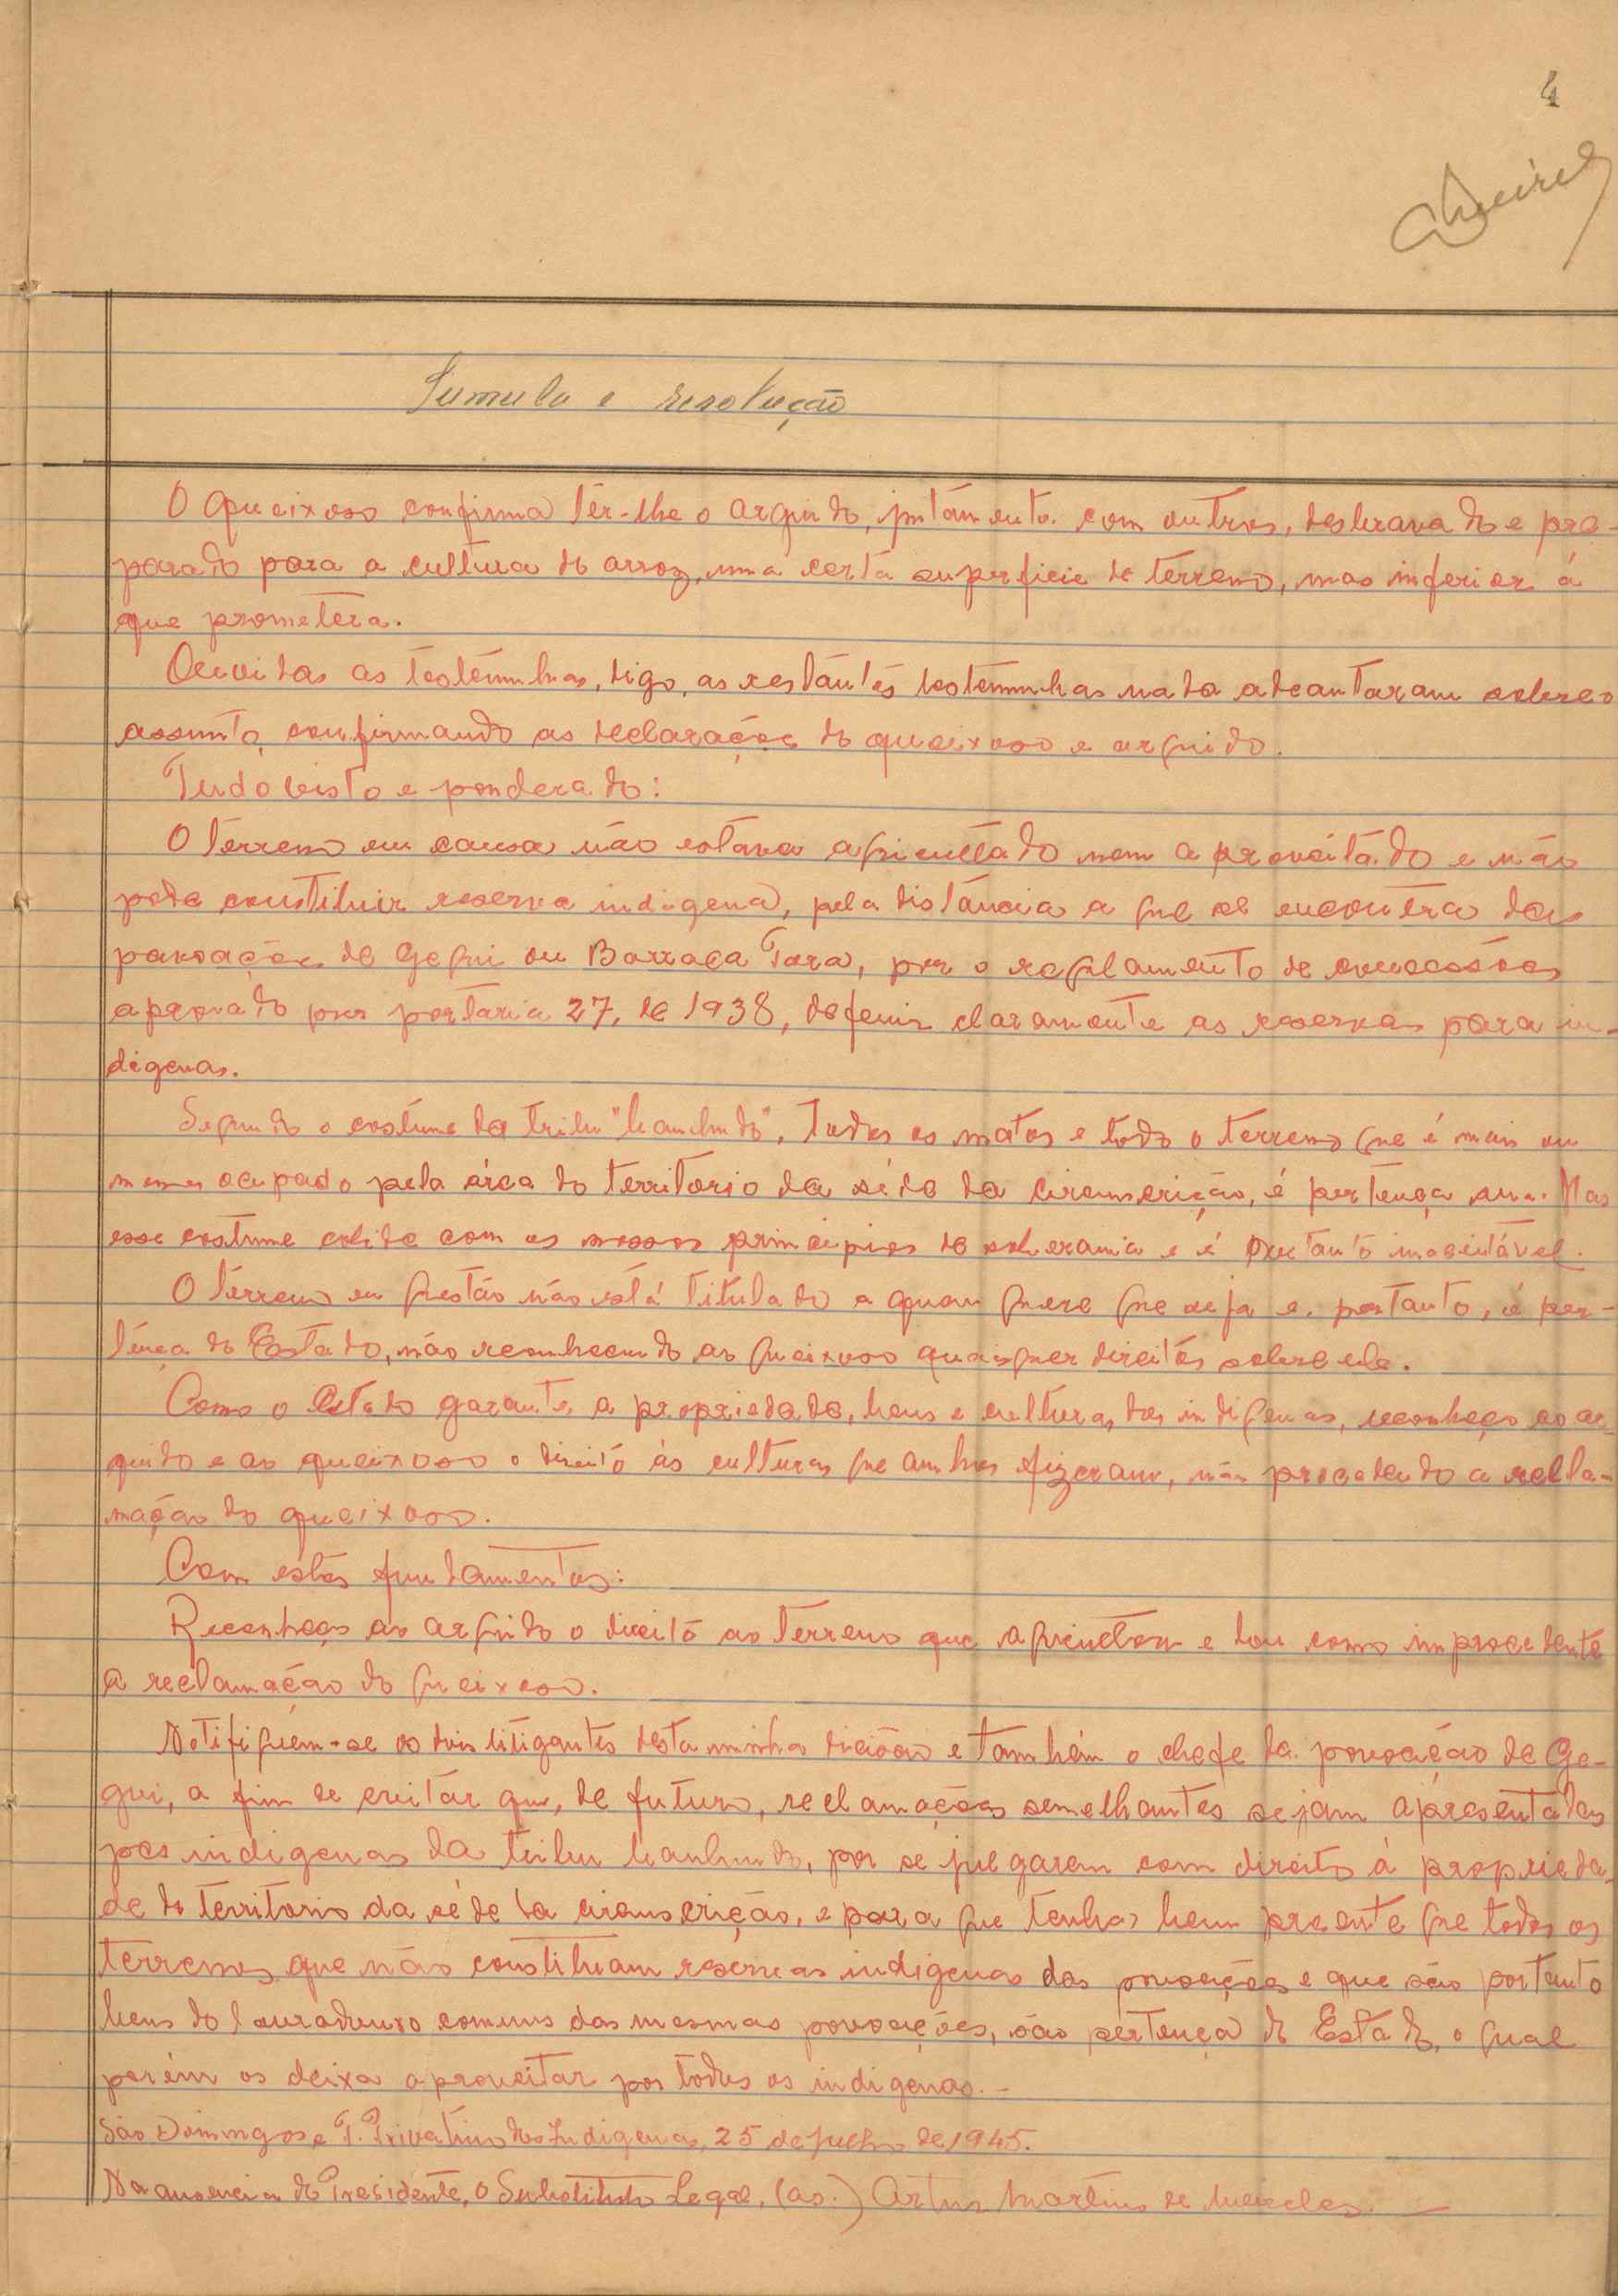 4
Sumula e resolução
O queixoso confirma têr-lhe o arguido, juntamente com outros, desbravado e pre-
parado para a cultura do arroz, uma certa superficie de terreno, mas inferior á
que prometera.
Ouvidas as testemunhas, digo, as restantes testemunhas nada adeantaram sobre o
assunto, confirmando as declarações do queixoso e arguido.
Tudo visto e ponderado:
O terreno em causa não estava agricultado nem aproveitado e não
pode constituir reserva indigena, pela distância a que se encontra das
povoações de Gegui ou Barraca Tara, por o regulamento de concessões
aprovado por portaria 27, de 1938, definir claramente as reservas para in-
digenas.
Segundo o costume da tribu "banhundo", todos os matos e todo o terreno que é mais ou
menos ocupado pela área do territorio da séde da circunscrição, é pertença sua. Mas
esse costume colide com os nossos principios de soberania e é portanto inaceitável.
O terreno em questão não está titulado a quem quere que seja e, portanto, é per-
tença do Estado, não reconhecendo ao queixoso quaisquer direitos sobre ele.
Como o Estado garante a propriedade, bens e culturas dos indigenas, reconheço ao ar-
guido e ao queixoso o direito ás culturas que ambos fizeram, não procedendo a recla-
mação do queixoso.
Com estes fundamentos:
Reconheço ao arguido o direito ao terreno que agricultou e dou como improcedente
a reclamação do queixoso.
Notifiquem-se os dois litigantes desta minha dicisão e também o chefe da povoação de Ge-
gui, a fim de evitar que, de futuro, reclamações semelhantes sejam apresentadas
por indigenas da tribu banhundo, por se julgarem com direito á proprieda-
de do territorio da séde da circunscrição, e para que tenha bem presente que todos os
terrenos que não constituam reservas indigenas das povoações e que são portanto
bens do logradouro comum das mesmas povoações, são pertença do Estado, o qual
porém os deixa aproveitar por todos os indigenas.-
São Domingos e T. Privativo dos Indigenas, 25 de julho de 1945.
Na ausencia do Presidente, O Substituto Legal, (as.) Artur Martins de Meireles.-